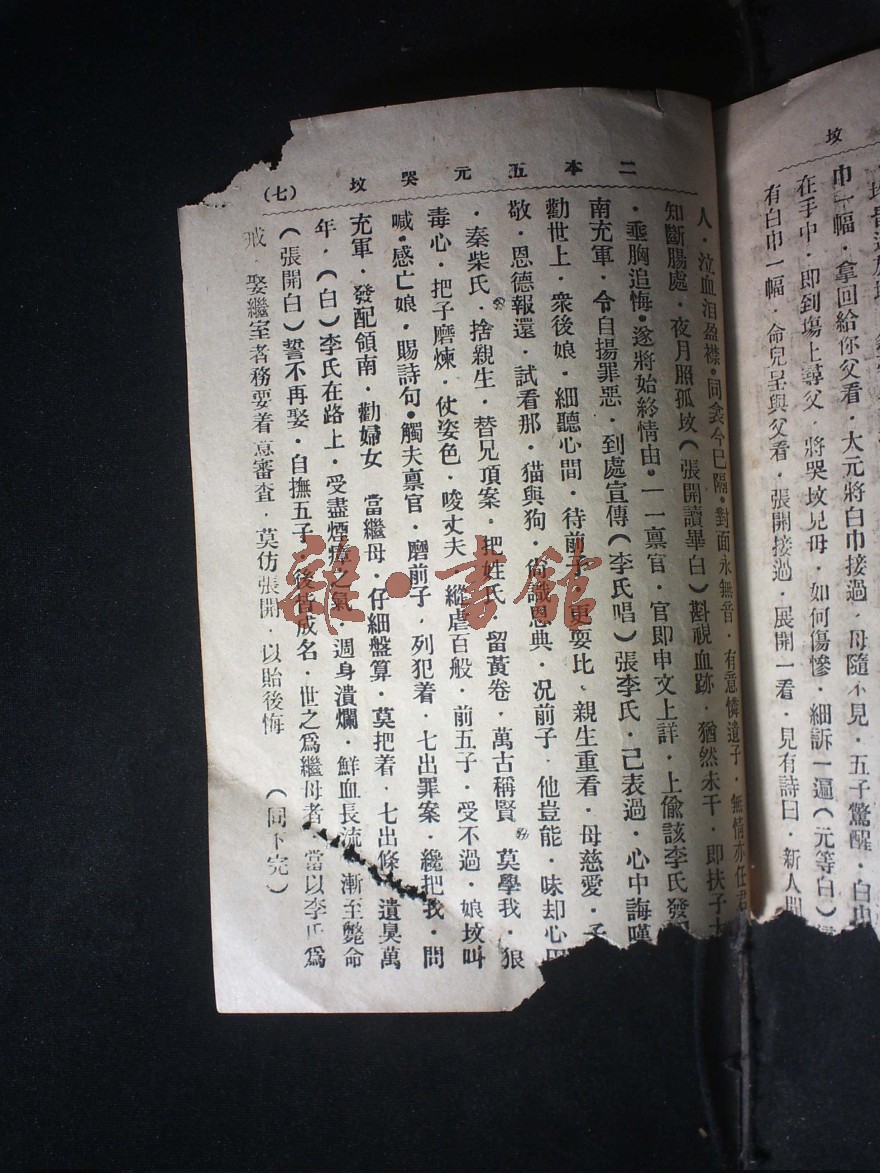 坟
巾一幅．拿回給你父看．大元將白巾接過．母隨不見．五子驚醒．白巾
在手中．即到傷上尋父．將哭坟見母．如何傷慘．細訴一遍（元等白）
有白巾一幅．命兒呈與父看．張開接過．展開一看．見有詩曰．新人間
二本五元哭坟（七）
人．泣血泪盈襟．同衾今已隔．對面永無音．有意憐遺子．無情亦任君
知斷腸處．夜月照孤坟（張開讀畢白）斟視血跡．猶然未干．即扶子大
．垂胸追悔．遂將始終情由．一一禀官．官即申文上詳．上偷該李氏發
南充軍．令自揚罪惡．到處宣傳（李氏唱）張李氏．己表過．心中誨嘆
勸世上．衆後娘．細聽心間．待前子．更耍比．親生重看．母慈愛．子
敬．恩德報還．試看那．猫與狗．尙識恩典．况前子．他豈能．味却心田
．秦柴氏．捨親生．替兄頂案．把姓氏．留黃卷．萬古稱賢．莫學我．狠
毒心．把子磨煉．仗姿色．唆丈夫．縱虐百般．前五子．受不過．娘坟叫
喊．感亡娘．賜詩句．觸夫禀官．磨前子．列犯着．七出罪案．纔把我．問
充軍．發配領南．勸婦女　當繼母．仔細盤算．莫把着．七出條．遺臭萬
年．（白）李氏在路上．受盡煙瘴之氣．週身潰爛．鮮血長流．漸至斃命
（張開白）誓不再娶．自撫五子．後皆成名．世之爲繼母者．當以李氏爲
戒．娶繼室者務要着意審查．莫仿張開．以貽後悔　（同下完）
龍•書館